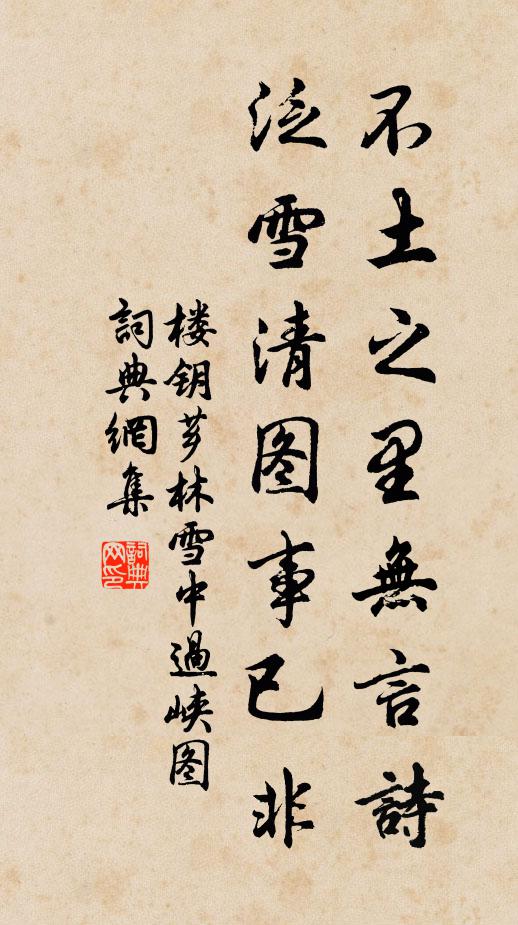 不土之里無言詩
泛雪清图事已非
楼钥芗林雪中過峡图
詞典網集
詞典网印